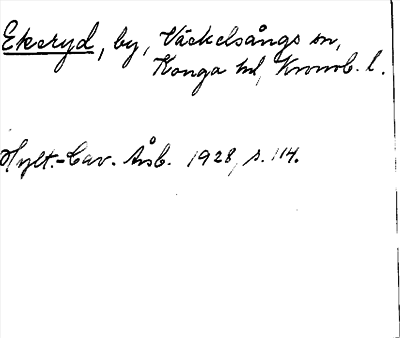 Ekeryd, by, Väckelsångs sn,
Konga hd, Kronob. l.
Hylt.-Cav. Årsb. 1928, s. 114.